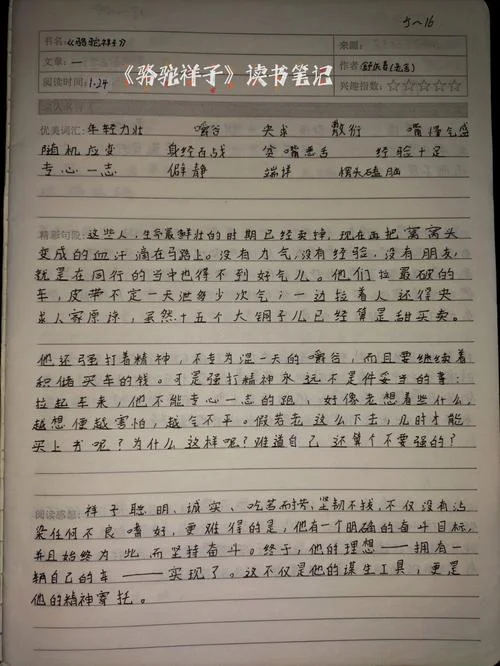 5~16
书名:《骆驼祥子》 来源:
文章: 一 作者:舒庆春(老舍)
阅读时间:1.24 兴趣指数:☆☆☆☆☆
《骆驼祥子》读书笔记
优美词汇:年轻力壮 嚼谷 央求 敷衍 嘴懂气盛
随机应变 身经百战 贫嘴恶舌 经验十足
专心一志 僻静 端详 愣头磕脑
精彩句段:这些人,生命最鲜壮的时期已经卖掉,现在再把窝窝头
变成的血汗滴在马路上。没有力气,没有经验,没有朋友,
就是在同行的当中也得不到好气儿。他们拉最破的
车,皮带不定一天泄多少次气;一边拉着人还得央
求人家原谅,虽然十五个大铜子儿已经算是甜买卖。
他还强打着精神,不专为混一天的嚼谷,而且要继续着
积储买车的钱。可是强打精神永远不是件妥当的事:
拉起车来,他不能专心一志的跑,好像老想着些什么,
越想便越害怕,越气不平。假若老这么下去,几时才能
买上车呢?为什么这样呢?难道自己还算个不要强的?
阅读感想:祥子聪明、诚实、吃苦而耐劳,坚韧不拔,不仅没有沾
染任何不良嗜好,更难得的是,他有一个明确的奋斗目标,
并且始终为此而坚持奋斗。终于,他的理想——拥有一
辆自己的车——实现了。这不仅是他的谋生工具,更是
他的精神寄托。